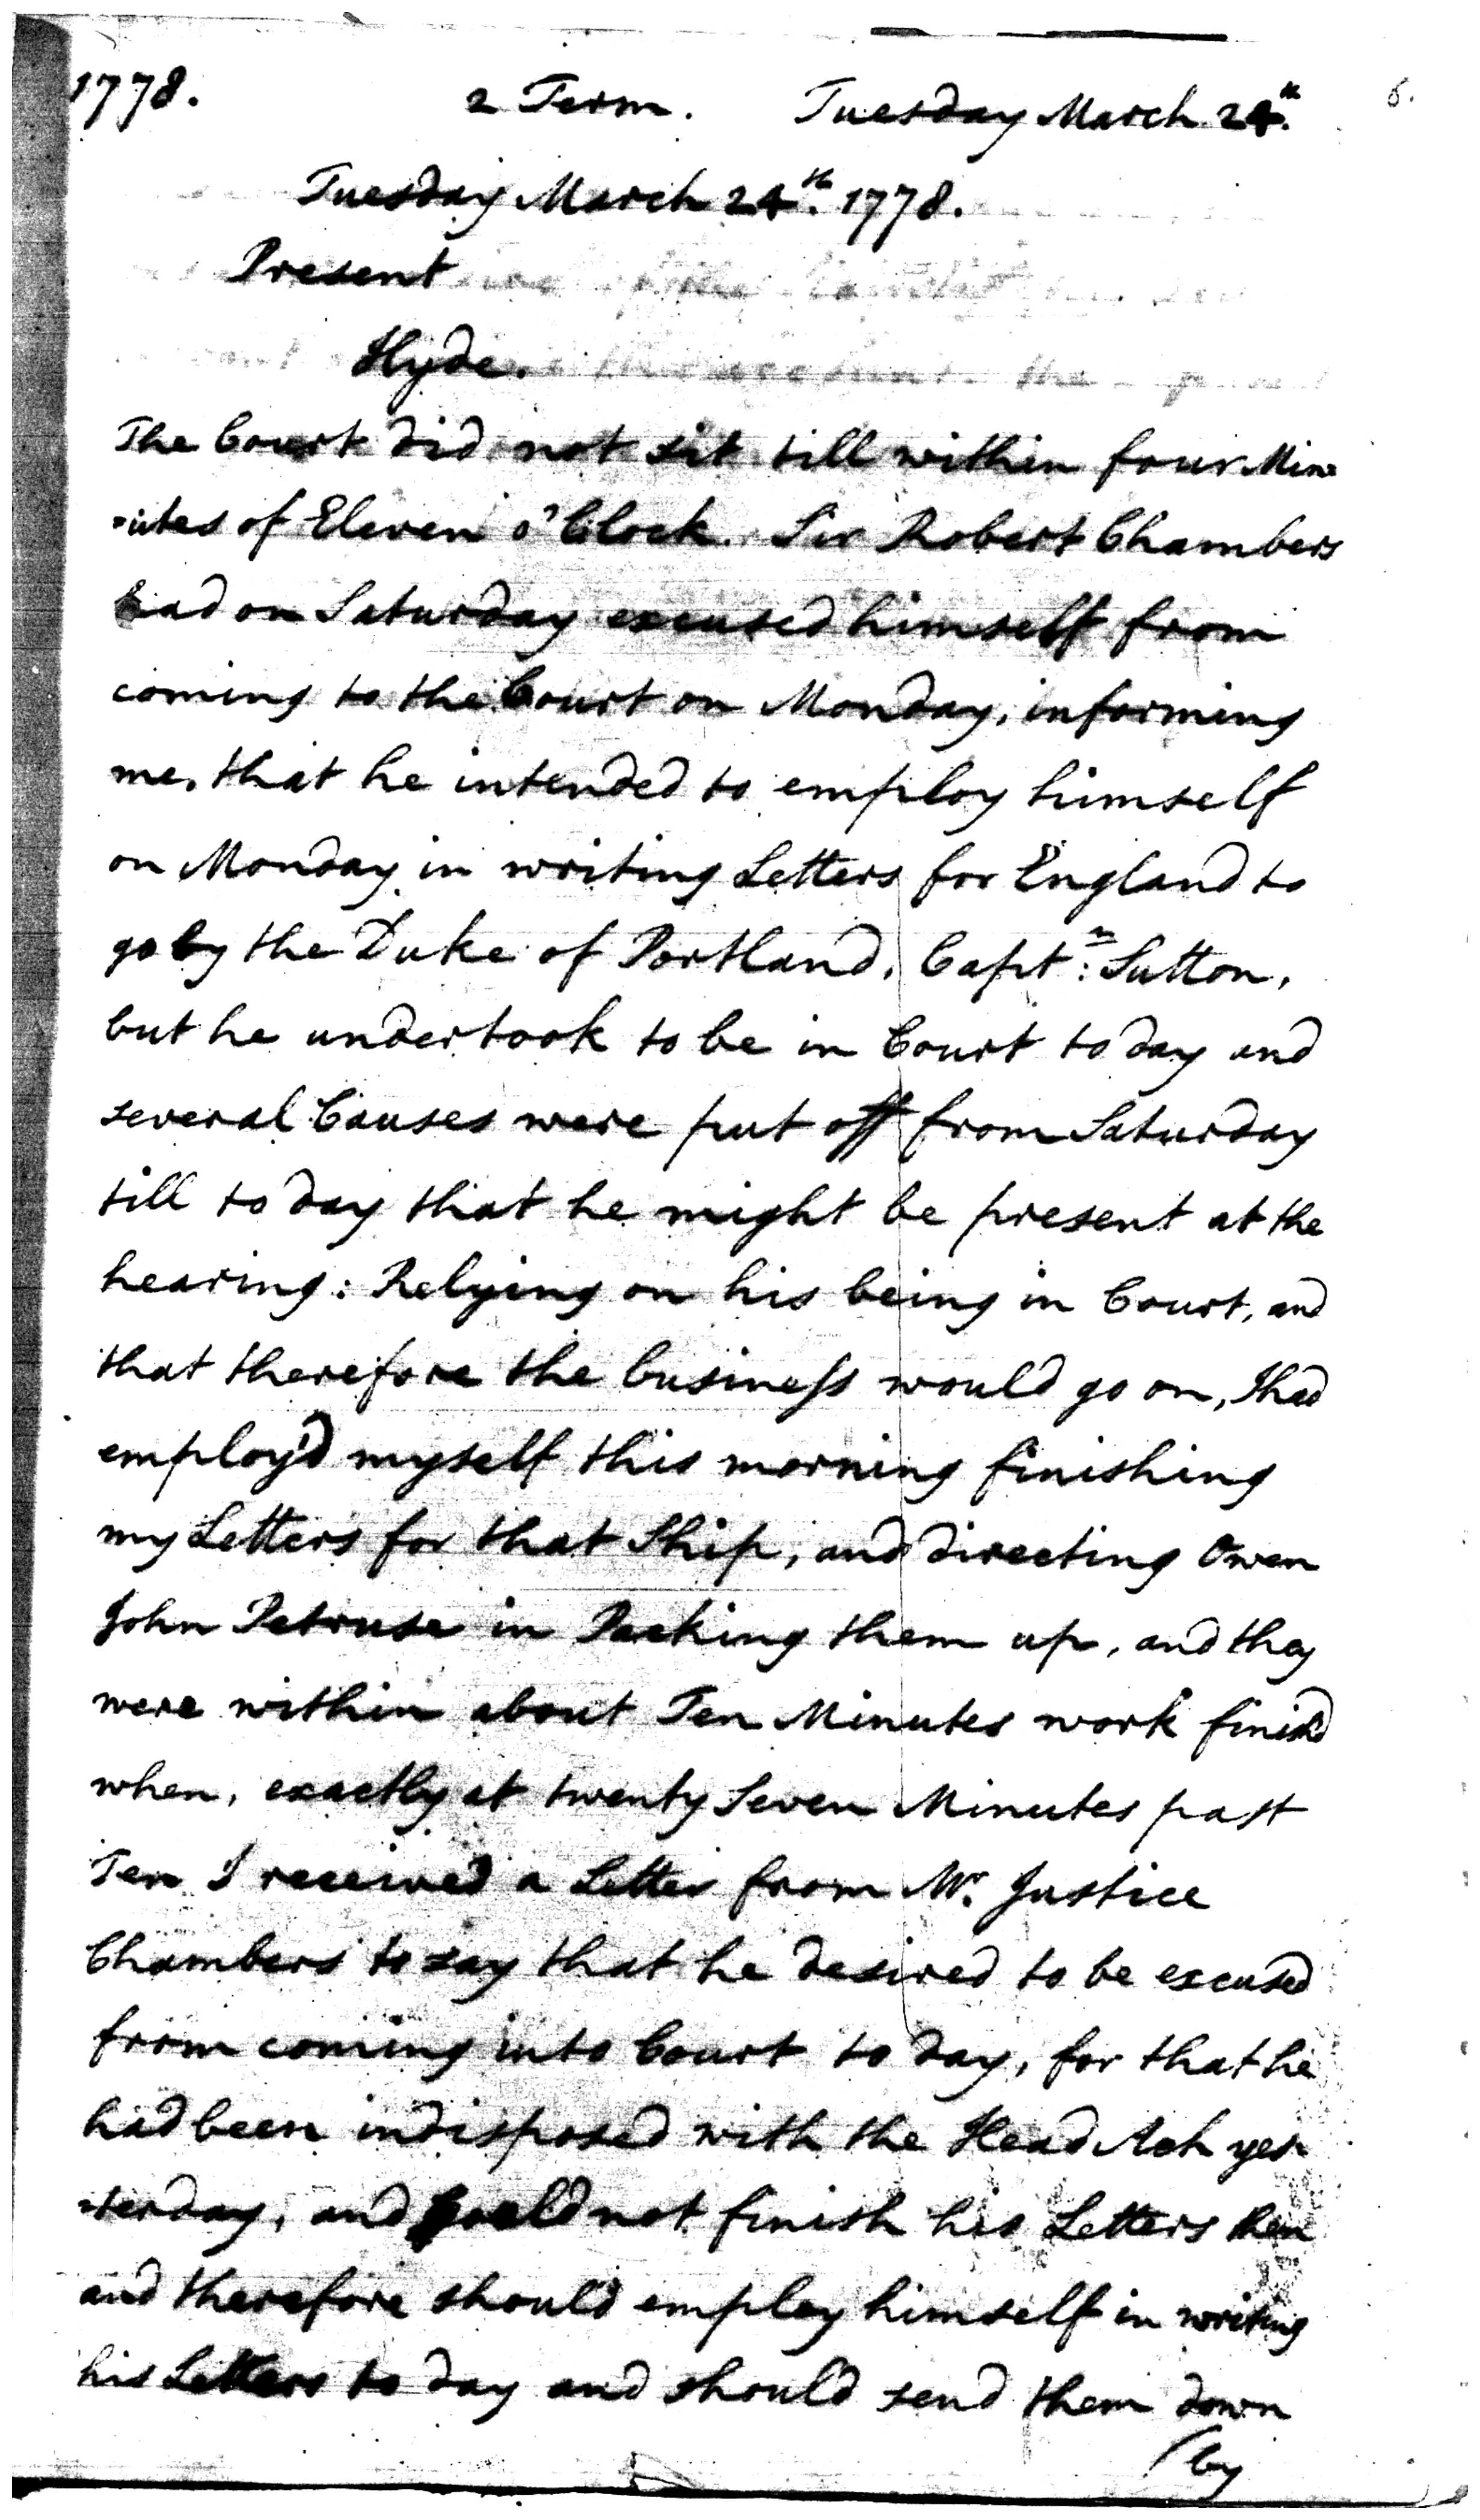 1778. 2 Term. Tuesday March 24th. 6.
Tuesday March 24th. 1778.
Present
Hyde.
The Court did not sit till within four Min=
=utes of Eleven o'Clock. Sir Robert Chambers
had on Saturday excused himself from
coming to the Court on Monday, informing
me, that he intended to employ himself
on Monday in writing Letters for England to
go by the Duke of Portland, Captn: Sutton,
but he undertook to be in Court to day and
several Causes were put off from Saturday
till to day that he might be present at the
hearing: Relying on his being in Court, and
that therefore the business would go on, I had
employ'd myself this morning finishing
my Letters for that Ship, and directing Owen
John Petruse in Packing them up, and they
were within about Ten Minutes work finish'd
when, exactly at twenty Seven Minutes past
Ten I received a Letter from Mr. Justice
Chambers to say that he desired to be excused
from coming into Court to day, for that he
had been indisposed with the Head Ach yes=
=terday, and could not finish his Letters then
and therefore should employ himself in writing
his Letters to day and should send them down
/by